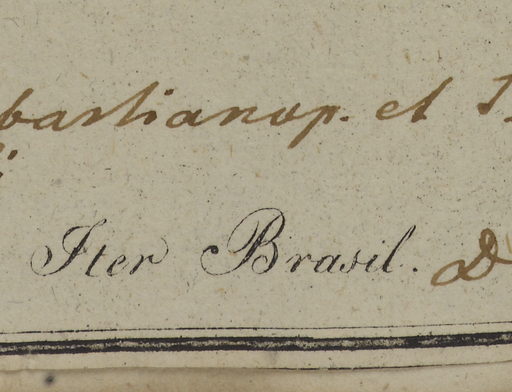 bastianop. et
Iter Brasil.